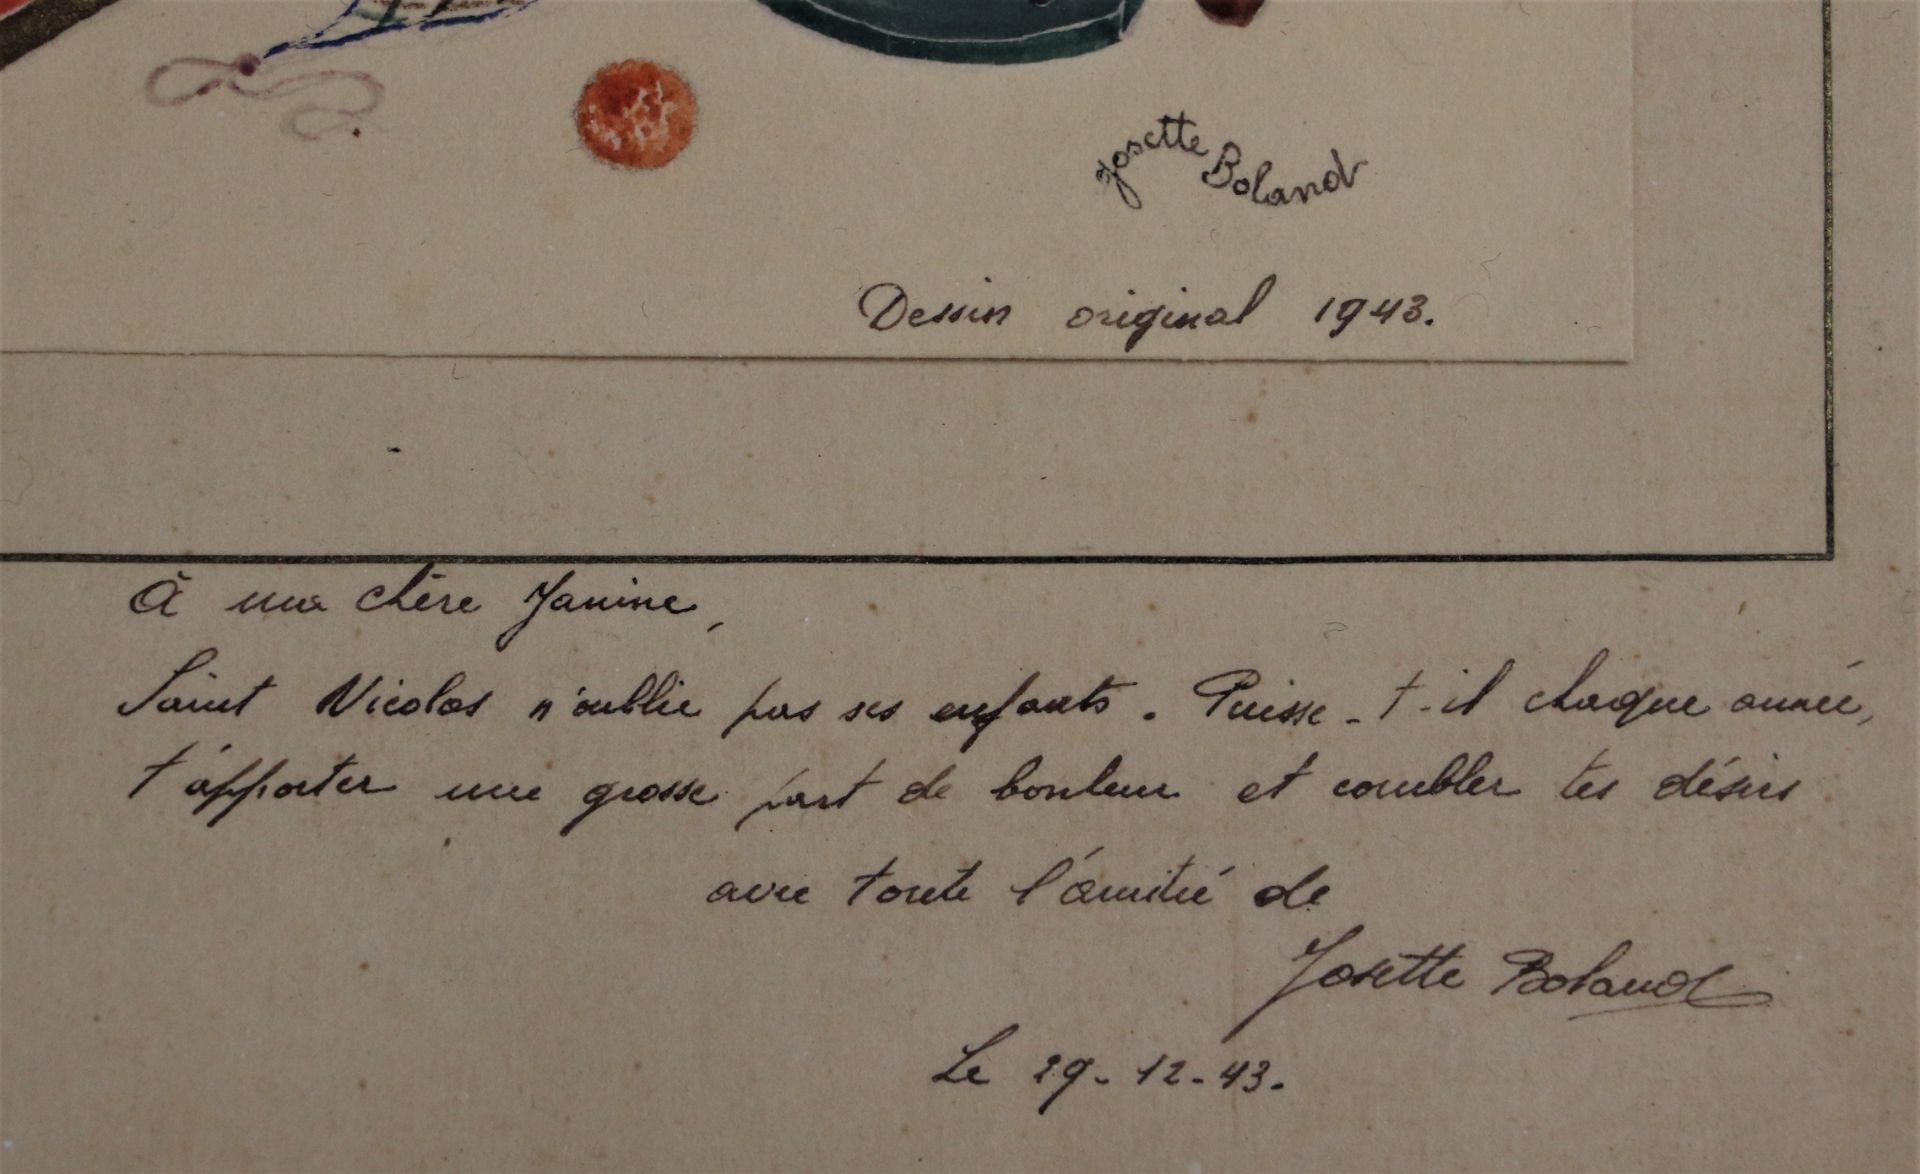 Josette Boland
Dessin original 1943.
À ma chère Janine,
Saint Nicolas n'oublie pas ses enfants. Puisse-t-il chaque année,
t'apporter une grosse part de bonheur et combler tes désirs
avec toute l'amitié de
Josette Boland
Le 29-12-43.